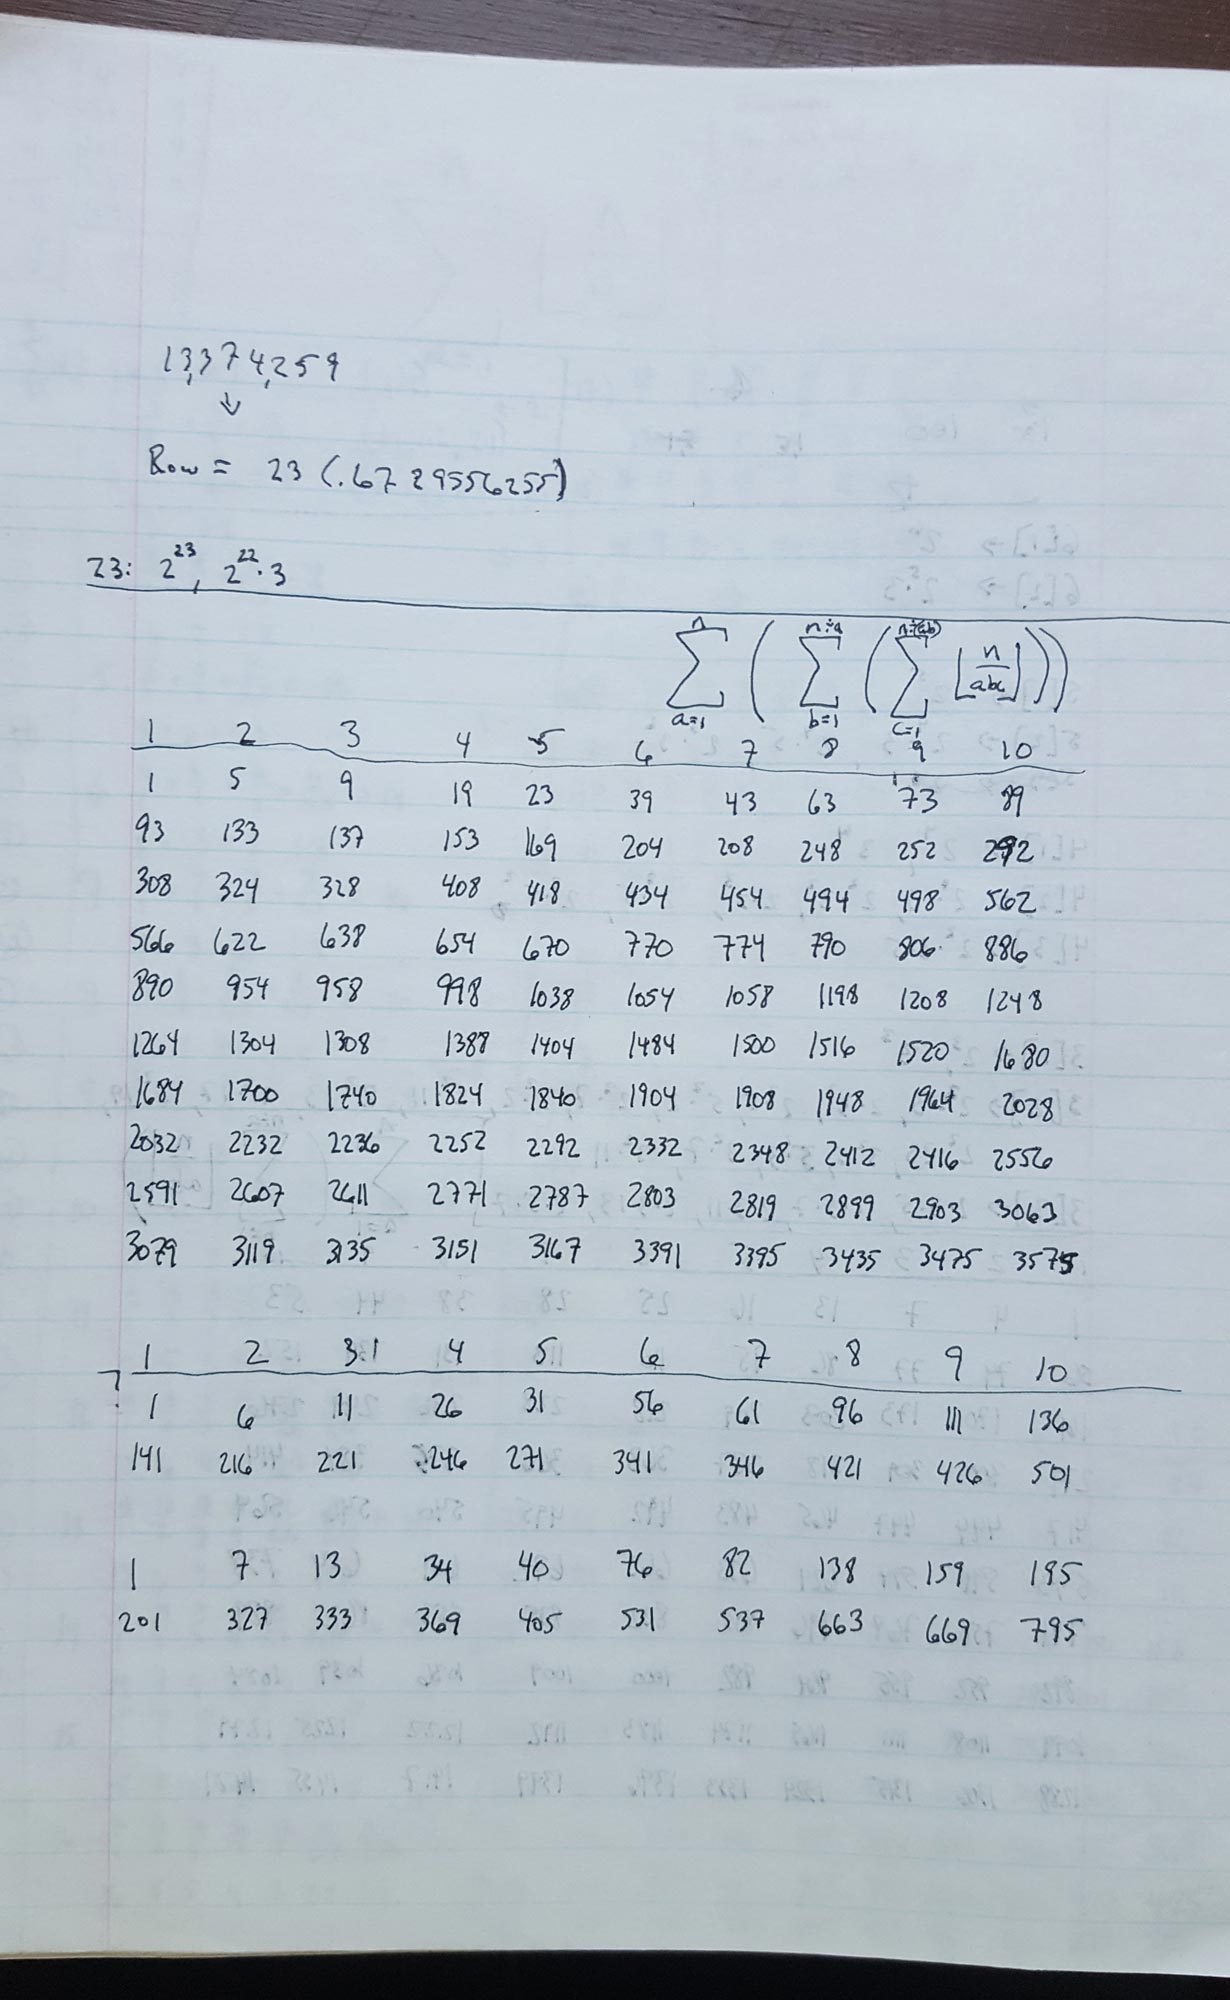 13,374,259
↓
Row = 23 (.6729556255)
23: 2^23, 2^22·3
n n÷a n÷(ab)
∑ ( ∑ ( ∑ ⌊n/abc⌋))
a=1 b=1 c=1
1 2 3 4 5 6 7 8 9 10
1 5 9 19 23 39 43 63 73 89
93 133 137 153 169 204 208 248 252 292
308 324 328 408 418 434 454 494 498 562
566 622 638 654 670 770 774 790 806 886
890 954 958 998 1038 1054 1058 1198 1208 1248
1264 1304 1308 1388 1404 1484 1500 1516 1520 1680
1684 1700 1740 1824 1840 1904 1908 1948 1964 2028
2032 2232 2236 2252 2292 2332 2348 2412 2416 2556
2591 2607 2611 2771 2787 2803 2819 2899 2903 3063
3079 3119 3135 3151 3167 3391 3395 3435 3475 3575
1 2 3 4 5 6 7 8 9 10
1 6 11 26 31 56 61 96 111 136
141 216 221 246 271 341 346 421 426 501
1 7 13 34 40 76 82 138 159 195
201 327 333 369 405 531 537 663 669 795